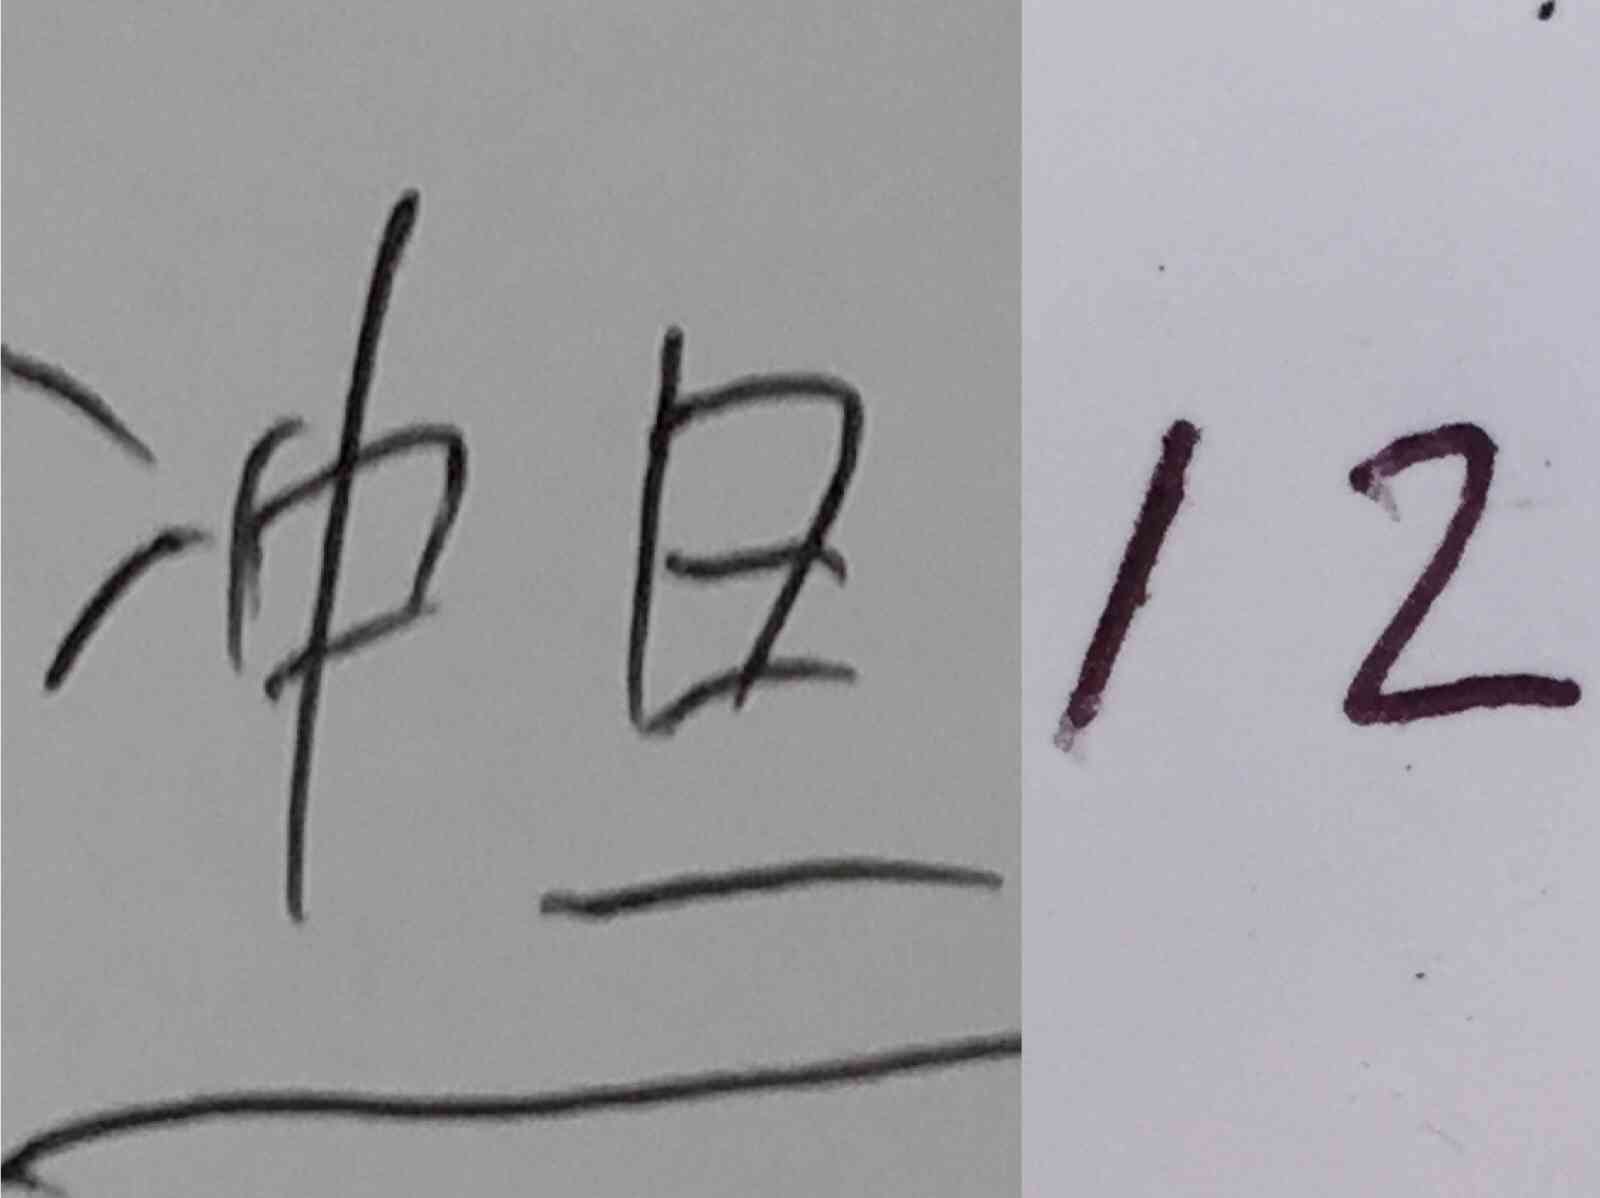 冲旦 12